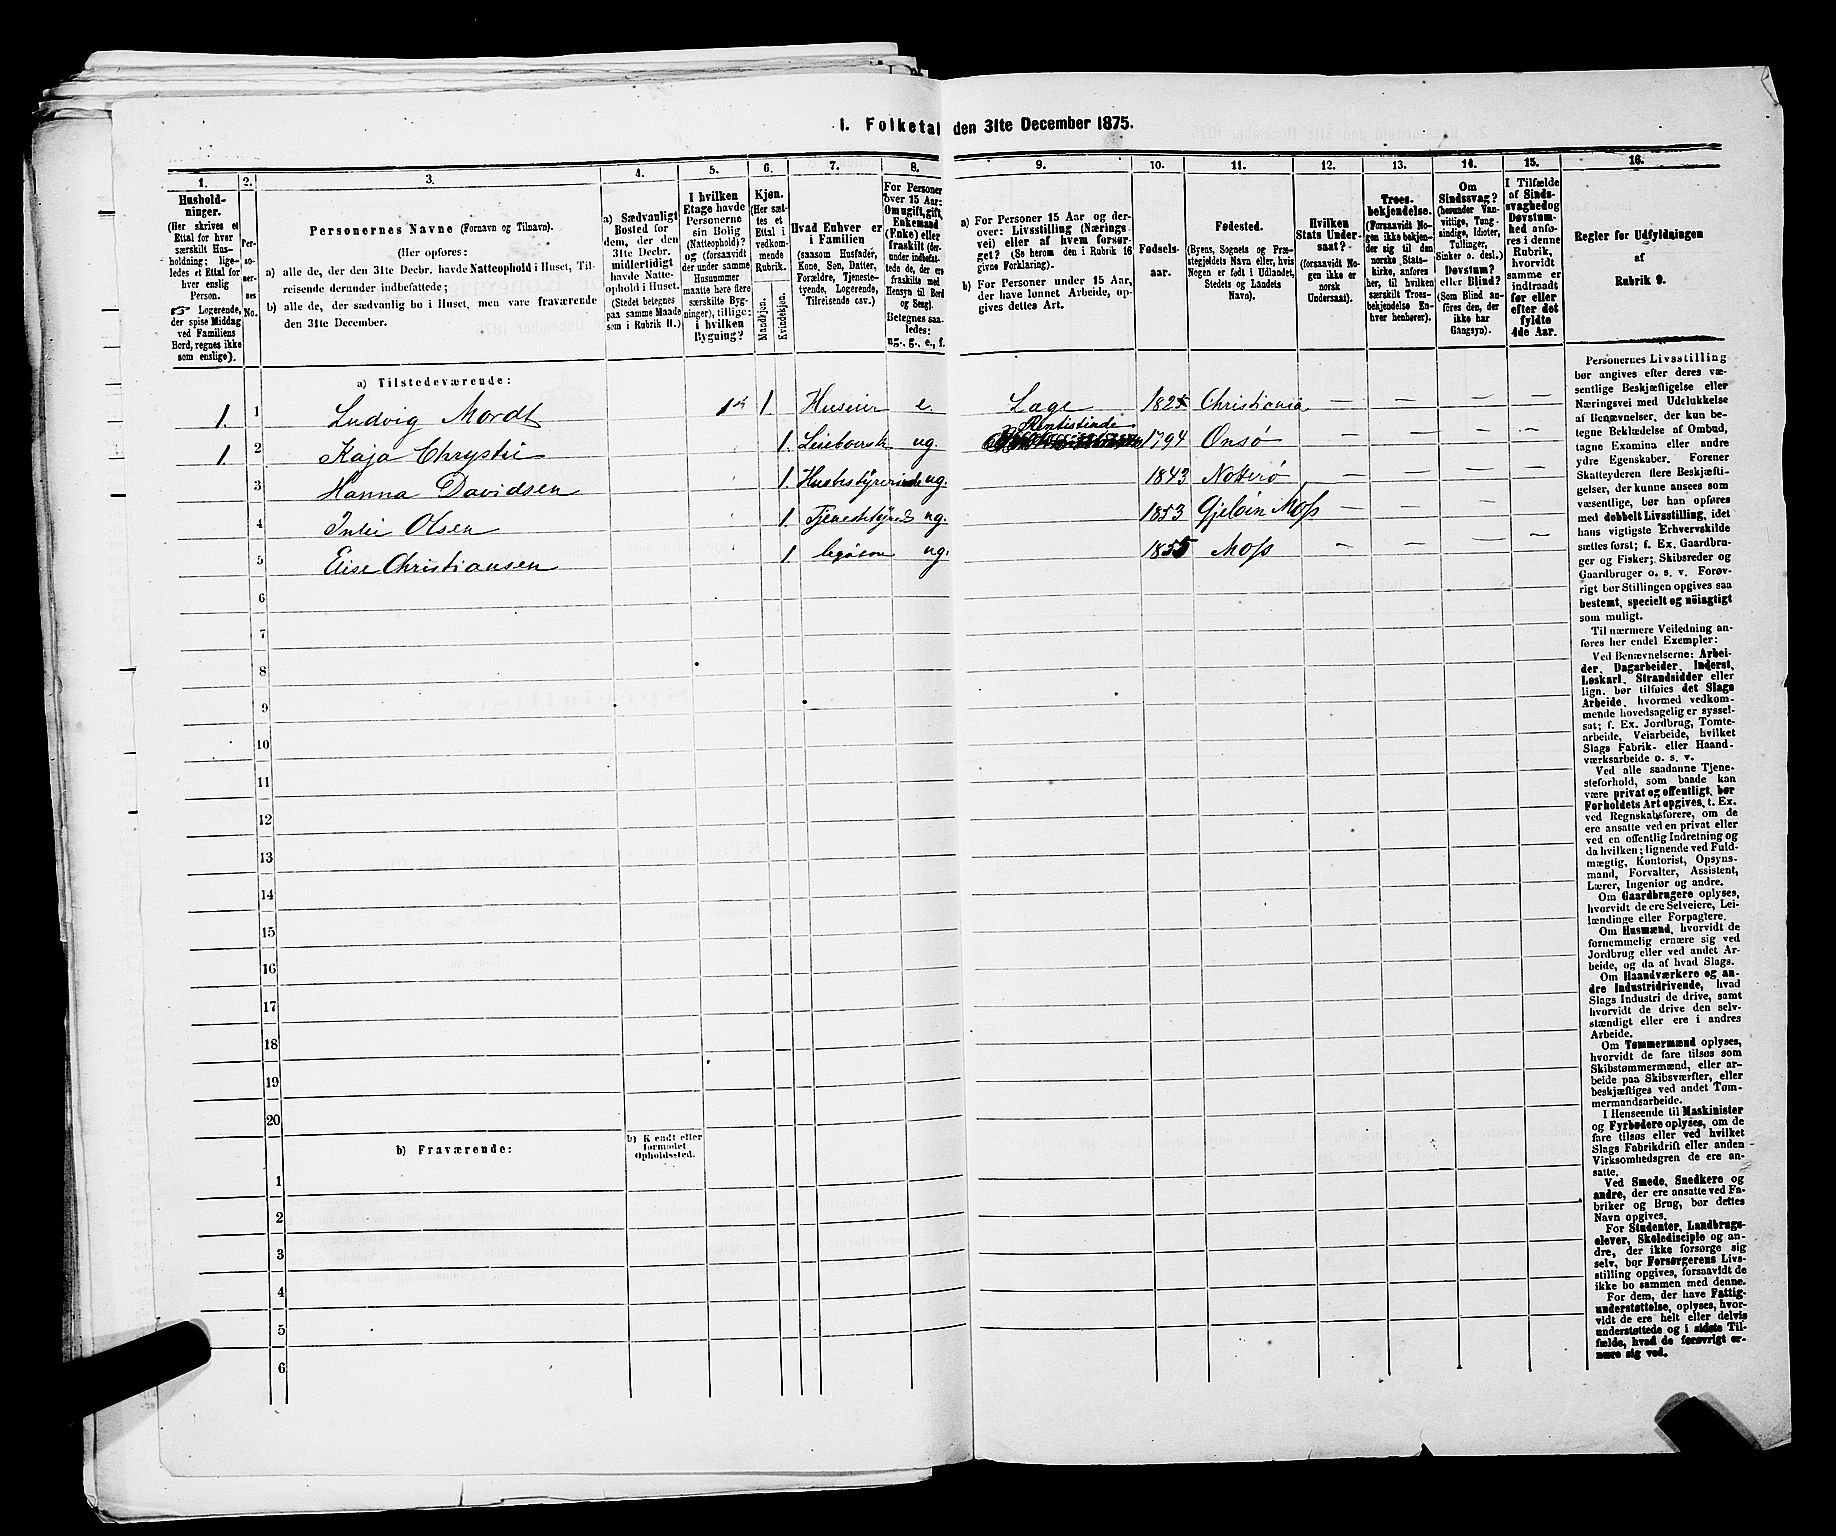 1. Folketal den 31te December 1875.
1.
2.
3.
4.
5.
6.
7.
8.
9.
10.
11.
12.
13.
14.
15.
16.
Hushold-
ninger.
(Her skrives et
Ettal for hver
særskilt Hus-
holdning; lige-
ledes et Ettal for
hver enslig
Person.
Logerende,
der spise Middag
ved Familiens
Bord, regnes ikke
som enslige).
Per-
so-
ner-
nes
No.
Personernes Navne (Fornavn og Tilnavn).
(Her opføres:
a) alle de, der den 31te Decbr. havde Natteophold i Huset, Til-
reisende derunder indbefattede;
b) alle de, der sædvanlig bo i Huset, men vare fraværende
den 31te December.
a) Sædvanligt
Bosted for
dem, der den
31te Decbr.
midlertidigt
havde Natte-
ophold i Huset.
(Stedet betegnes
paa samme Maade
som i Rubrik 11.)
I hvilken
Etage havde
Personerne
sin Bolig
(Natteophold)?
og (forsaavidt
der under samme
Husnummer
maatte høre flere
særskilte Byg-
ninger), tillige:
i hvilken
Bygning?
Kjøn.
(Her sæt-
tes et
Ettal i
vedkom-
mende
Rubrik.
Mandkjøn.
Kvindekjøn.
Hvad Enhver er
i Familien
(saasom Husfader,
Kone, Søn, Datter,
Forældre, Tjeneste-
tyende, Logerende,
Tilreisende cav.)
For Personer
over 15 Aar:
Om ugift, gift,
Enkemand
(Enke) eller
fraskilt (der-
under indbefat-
tede de, der ere
fraskilte med
Hensyn til Bord
og Seng).
Betegnes saa-
ledes:
ug., g., e., f.
a) For Personer 15 Aar og der-
over: Livsstilling (Nærings-
vei) eller af hvem forsør-
get? (Se herom den i Rubrik 16
givne Forklaring).
b) For Personer under 15 Aar,
der have lønnet Arbeide, op-
gives dettes Art.
Fødsels-
aar.
Fødested.
(Byens, Sognets og Præ-
stegjeldets Navn eller, hvis
Nogen er født i Udlandet,
Stedets og Landets
Navn).
Hvilken
Stats Under-
saat?
(forsaavidt No-
gen ikke er
norsk
Undersaat).
Troes-
bekjendelse.
(Forsaavidt No-
gen ikke bekjen-
der sig til den
norske Stats-
kirke, anføres
her, til hvilken
særskilt Troes-
bekjendelse En-
hver henhører).
Om
Sindssvag?
(herunder Van-
vittige, Tung-
sindige, Idioter,
Tullinger,
Sinker o. desl.)
Døvstum?
eller Blind?
(Som Blind an-
føres den, der
ikke har
Gangsyn).
I Tilfælde
af Sinds-
svaghed og
Døvstum-
hed anfø-
res i denne
Rubrik,
hvorvidt
samme er
indtraadt
før eller
efter det
fyldte
4de Aar.
Regler for Udfyldningen
af
Rubrik 9.
a) Tilstedeværende:
1. 1 Ludvig Mordt 1 1. Huseier e. Læge 182 Christiania — — — —
Rentistinde
1. 2 Kaja Chrystie 1. ug. 1794 Onsø — — — —
3 Hanna Davidsen 1. Husbestyrerinde ug. 1843 Nøtterø — — — —
4 Olsen 1. ug. 1853 Gjeløin Moss — —
5 Elise Christiansen 1. ug. 1855 Moss — — — —
6
7
8
9
10
11
12
13
14
15
16
17
18
19
20
b) Fraværende:
b) Kjendt eller
formodet
Opholdssted.
1
2
3
4
5
6
Personernes Livsstilling
bør angives efter deres væ-
sentlige Beskjæftigelse eller
Næringsvei med Udelukkelse
af Benævnelser, der kun be-
tegne Beklædelse af Ombud,
tagne Examina eller andre
ydre Egenskaber. Forener
Skatteyderen flere Beskjæfti-
gelser, der kunne ansees som
væsentlige, bør han opføres
med dobbelt Livsstilling, idet
hans vigtigste Erhvervskilde
sættes først; f. Ex. Gaardbru-
ger og Fisker; Skibsreder og
Gaardbruger o. s. v. Forøv-
rigt bør Stillingen opgives saa
bestemt, specielt og nöiagtigt
som muligt.
Til nærmere Veiledning an-
føres her endel Exempler:
Ved Benævnelserne: Arbei-
der, Dagarbeider, Inderst,
Løskarl, Strandsidder eller
lign. bør tilføies det Slags
Arbeide, hvormed vedkom-
mende hovedsagelig er syssel-
sat; f. Ex. Jordbrug, Tomte-
arbeide, Veiarbeide, hvilket
Slags Fabrik- eller Haand-
værksarbeide o. s. v.
Ved alle saadanne Tjene-
steforhold, som baade kan
være privat og offentligt, bør
Forholdets Art opgives, t. Ex.
ved Regnskabsførere, om de
ere ansatte ved en privat eller
ved en offentlig Indretning og
da hvilken; lignende ved Fuld-
mægtig, Kontorist, Opsyns-
mand, Forvalter, Assistent,
Lærer, Ingeniør og andre.
Om Gaardbrugere oplyses,
hvorvidt de ere Selveiere, Lei-
lændinge eller Forpagtere.
Om Husmænd, hvorvidt de
fornemmelig ernære sig ved
Jordbrug eller ved andet Ar-
beide, og da af hvad Slags.
Om Haandværkere og an-
dre Industridrivende, hvad
Slags Industri de drive, samt
hvorvidt de drive den selv-
stændigt eller ere i andres
Arbeide.
Om Tømmermænd oplyses,
hvorvidt de fare tilsøs som
Skibstømmermænd, eller ar-
beide paa Skibsværfter, eller
beskjæftiges ved andet Tøm-
mermandsarbeide.
I Henseende til Maskinister
og Fyrbødere oplyses, om de
fare tilsøs eller ved hvilket
Slags Fabrikdrift eller anden
Virksomhedsgren de ere an-
satte.
Ved Smede, Snedkere og
andre, der ere ansatte ved Fa-
briker og Brug, bør dettes
Navn opgives.
For Studenter, Landbrugs-
elever, Skoledisciple og an-
dre, der ikke forsørge sig
selv, bør Forsørgerens Livs-
stilling opgives, forsaavidt de
ikke bo sammen med denne.
For dem, der have Fattig-
understøttelse, oplyses, hvor-
vidt de ere helt eller delvis
understøttede og i sidste Til-
fælde, hvad de forøvrigt er-
nære sig ved.